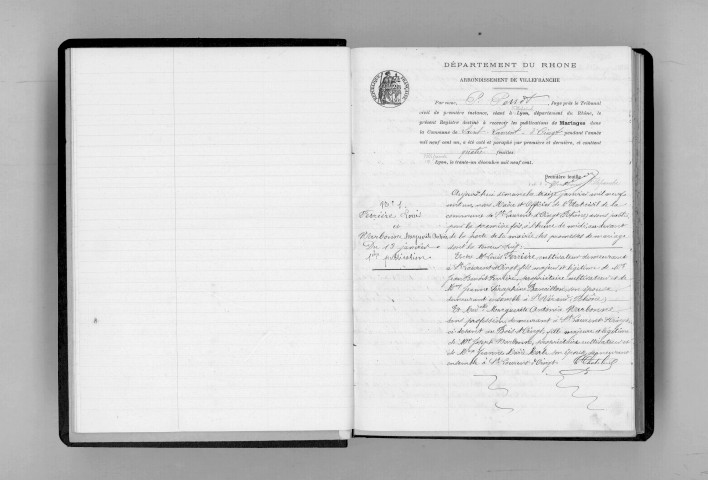 DÉPARTEMENT DU RHONE
ARRONDISSEMENT DE VILLEFRANCHE
Par nous, Juge près le Tribunal
civil de première instance, séant à Lyon, département du Rhône, le
présent Registre destiné à recevoir les publications de Mariages dans
la Commune de Saint Laurent d'Oingt pendant l'année
mil neuf cent un, a été coté et paraphé par première et dernière, et contient
quatre feuilles.
Lyon, le trente-un décembre mil neuf cent.
Première feuille
N° 1.
Ferrière Louis
et
Narbonne Marguerite
Du 13 janvier
1ère publication
Aujourd'hui dimanche treize janvier mil neuf
cent un, nous Maire et officier de l'Etat civil de la
commune de St Laurent d'Oingt, Rhône, avons publié
pour la première fois, à l'heure de midi, au devant
de la porte de la mairie, les promesses de mariage
dont la teneur suit:
Entre Mr Louis Ferrière, cultivateur demeurant
à St Laurent d'Oingt, fils majeur et légitime de Mr
Jean Benoit Ferrière, propriétaire cultivateur et de
Mme Jeanne Séraphine son épouse,
demeurant ensemble à St Vérand, Rhône;
Et Mlle Marguerite Antonia Narbonne
sans profession, demeurant à St Laurent d'Oingt,
ci devant au Bois d'Oingt, fille majeure et légitime
de Mr Joseph Narbonne, propriétaire cultivateur
et de Mme Jeanne Marie son épouse, demeurant
ensemble à St Laurent d'Oingt.